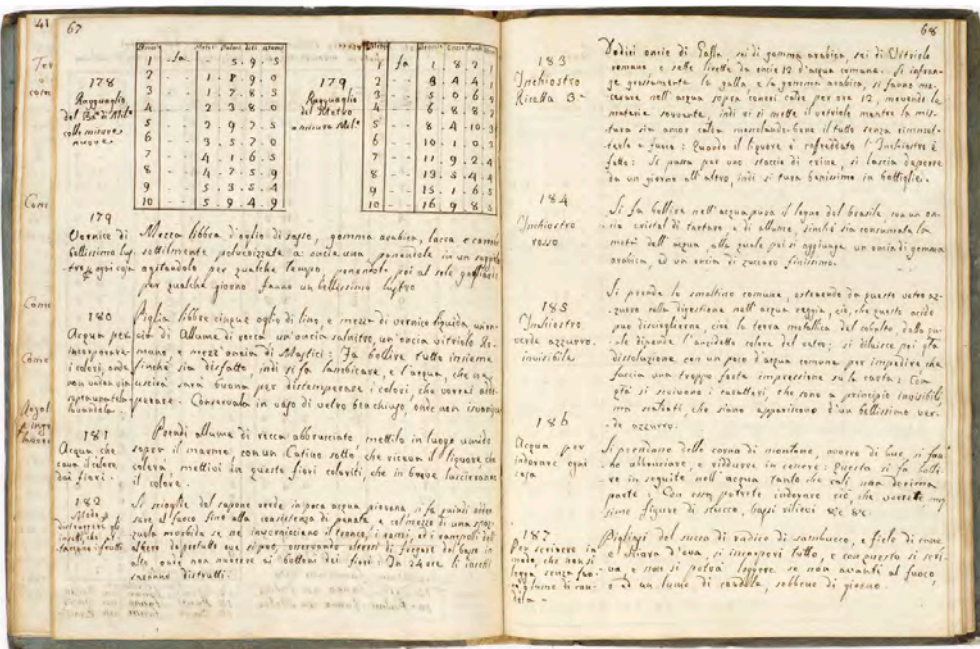 41
67
178
Ragguaglio
del B.º di Mil.º
colle misure
nuove
Metri Palmi diti atomi
1 fa - . 5 . 9 . 5
2 - - 1 . 1 . 9 . 0
3 - - 1 . 7 . 8 . 5
4 - - 2 . 3 . 8 . 0
5 - - 2 . 9 . 7 . 5
6 - - 3 . 5 . 7 . 0
7 - - 4 . 1 . 6 . 5
8 - - 4 . 7 . 5 . 9
9 - - 5 . 3 . 5 . 4
10 - - 5 . 9 . 4 . 9
179
Ragguaglio
del Metro
a misura Mil.º
1 fa 1 . 8 . 2 . 1
2 - - 3 . 4 . 4 . 1
3 - - 5 . 0 . 6 . 2
4 - - 6 . 8 . 8 . 2
5 - - 8 . 4 . 10 . 3
6 - - 10 . 1 . 0 . 3
7 - - 11 . 9 . 2 . 4
8 - - 13 . 5 . 4 . 4
9 - - 15 . 1 . 6 . 5
10 - - 16 . 9 . 8 . 5
179
Vernice di
bellissimo lus
tro p ogni cosa
Mezza libbra d'oglio di sasso, gomma arabica, lacca e
sottilmente polverizzate a oncie una ponendole in un
agitandolo per qualche tempo, ponendolo poi al sole gagliardo
per qualche giorno fanno un bellissimo lustro
180
Acqua per
incorporare
i colori, onde
non vadan via
lavandola
Piglia libbre cinque oglio di lino, e mezza di vernice liquida,
cie di Allume di rocca un'oncia salnitro, un'oncia vitriolo Ro-
mano, e mezz'oncia di Mastici: Fa bollire tutto insieme
finchè sia disfatto, indi si fa lambicare, e l'acqua, che ne
uscirà sarà buona per distemperare i colori, che vorrai
perare. Conservala in vaso di vetro ben chiuso, onde non
181
Acqua che
cava il colore
dai fiori.
Prendi allume di rocca abbrucciato, mettilo in luogo umido
sopra il marmo, con un Catino sotto che riceva il liquore che
colerà, mettivi in questo fiori coloriti, che in breve lascieranno
il colore.
182
Modo p
distruggere gli
insetti, che
i frutti
Si scioglie del sapone verde in poca acqua piovana, si fa quindi
sare al fuoco sino alla consistenza di panata, e col mezzo di una
zuola morbida se ne inverniciano il tronco, i rami, ed i rampolli dell'
albero dapertutto ove si può, osservando altresì di fregare dal basso in
alto, onde non nuocere ai bottoni dei fiori. In 24 ore li insetti
saranno distrutti.
68
183
Inchiostro
Ricetta 3ª
Dodici oncie di Galla, sei di gomma arabica, sei di Vetriolo
romano e sette libbre da oncie 12 d'acqua comune. Si infran-
ge grossamente la galla, e la gomma arabica, si fanno ma-
cerare nell'acqua sopra ceneri calde per ore 12, movendo la
materia sovvente, indi vi si mette il vetriolo mentre la mis-
tura sia ancor calda mescolando bene il tutto senza rimmet-
terlo a fuoco: Quando il liquore è raffreddato l'Inchiostro è
fatto: Si passa per uno staccio di crine, si lascia deporre
da un giorno all'altro, indi si tura benissimo in bottiglie.
184
Inchiostro
rosso
Si fa bollire nell'acqua pura il legno del brasile con un on-
cia cristal di tartaro, e di allume, sinchè sia consumata la
metà dell'acqua, alla quale poi si aggiunge un oncia di gomma
arabica, ed un oncia di zuccaro finissimo.
185
Inchiostro
verde azzurro
invisibile
Si prende lo smaltino comune, estraendo da questo vetro az-
zurro colla digestione nell'acqua reggia, ciò, che questo acido
può disciogliere, cioè la terra metallica del cobalto, dalla qua-
le dipende l'anzidetto colore del vetro; si diluisce poi qta
dissoluzione con un poco d'acqua comune per impedire che
faccia una troppo forte impressione su la carta: Con
qta si scrivono i caratteri, che sono a principio invisibili,
ma scaldati, che siano appariscono d'un bellissimo ver-
de azzurro.
186
Acqua per
indorare ogni
cosa
Si prendano delle corna di montone, ovvero di bue, si fan-
no abbruciare, e riddurre in cenere: Questa si fa bolli-
re in seguito nell'acqua tanto che cali una decima
parte: Con essa potrete indorare ciò, che vorrete
sime figure di stucco, bassi rilievi &c &c.
187
Per scrivere in
modo, che non si
legga senza fuo-
co o lume di can-
dela
Piglisi del succo di radice di sambucco, e fiele di cane
e chiara d'ova, si incorpori tutto, e con questo si scri-
va e non si potrà leggere se non avanti al fuoco
o ad un lume di candela, sebbene di giorno.